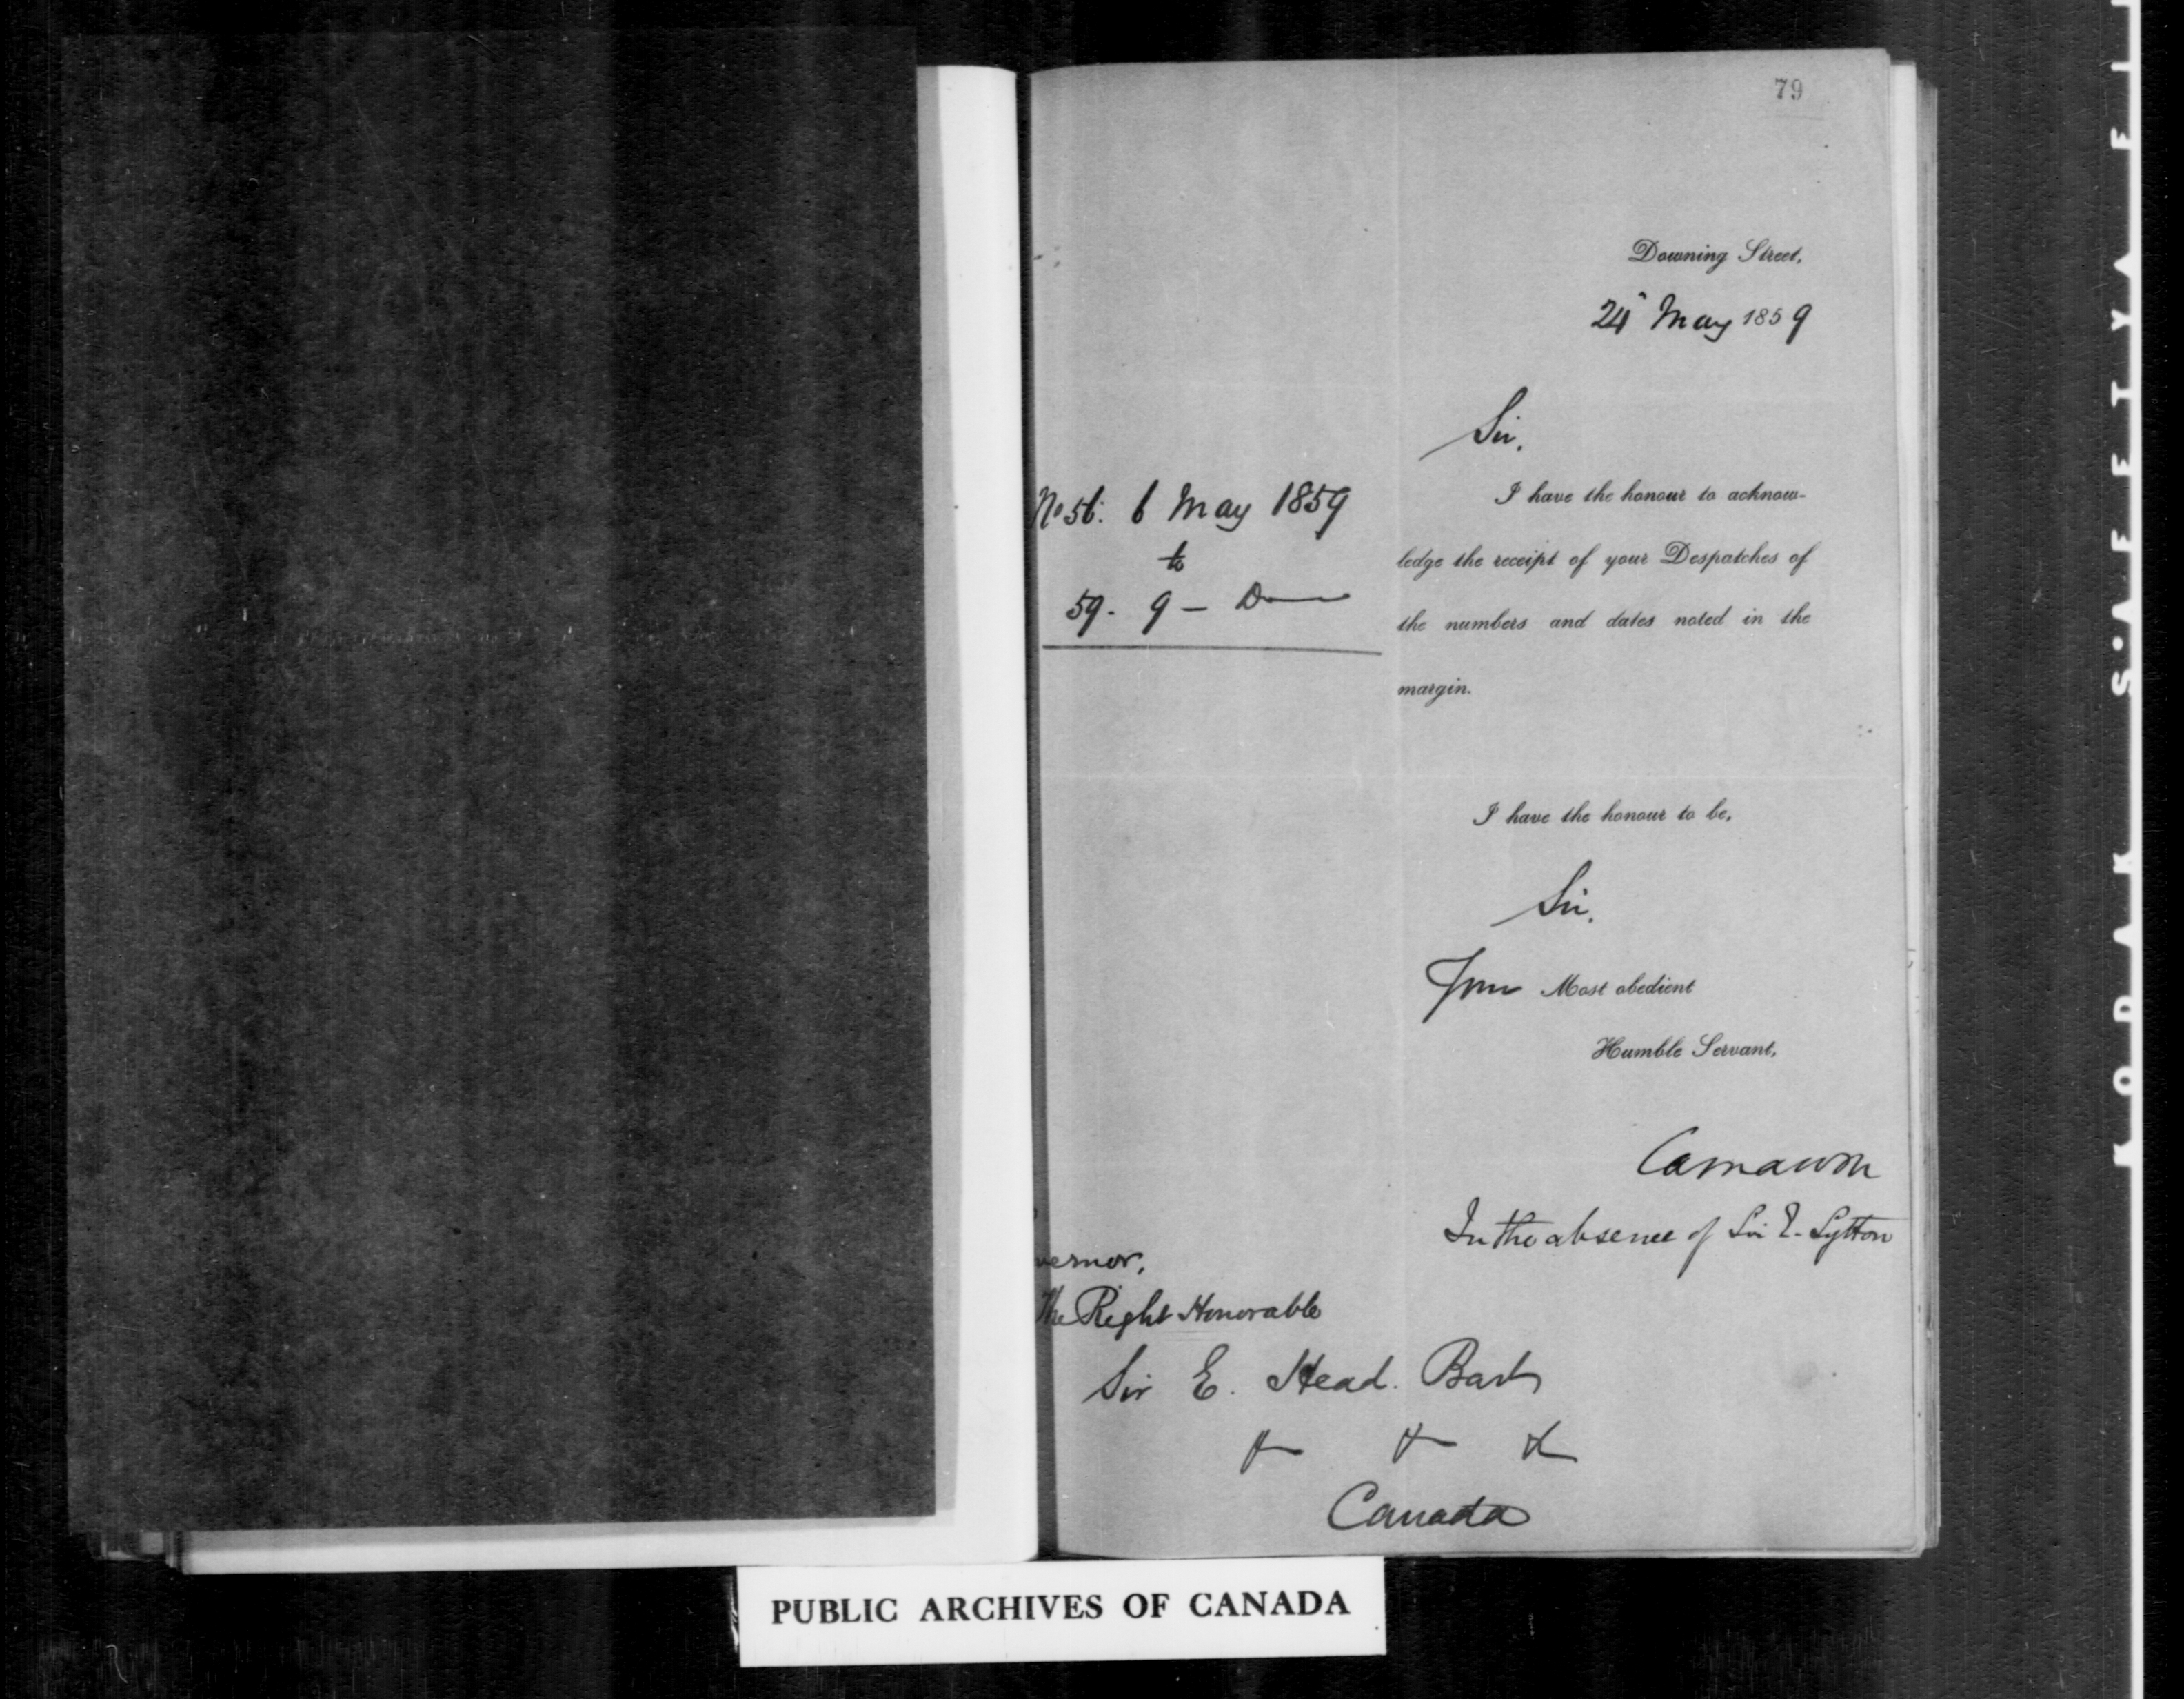 79
Downing Street,
24 May 1859
Sir,
No 56. 6 May 1859
to
59. 9 — Do
I have the honour to acknow-
ledge the receipt of your Despatches of
the numbers and dates noted in the
margin.
I have the honour to be,
Sir,
Your Most obedient
Humble Servant,
Carnarvon
In the absence of Sir E. Lytton
vernor,
The Right Honorable
Sir E. Head. Bart
Canada
PUBLIC ARCHIVES OF CANADA